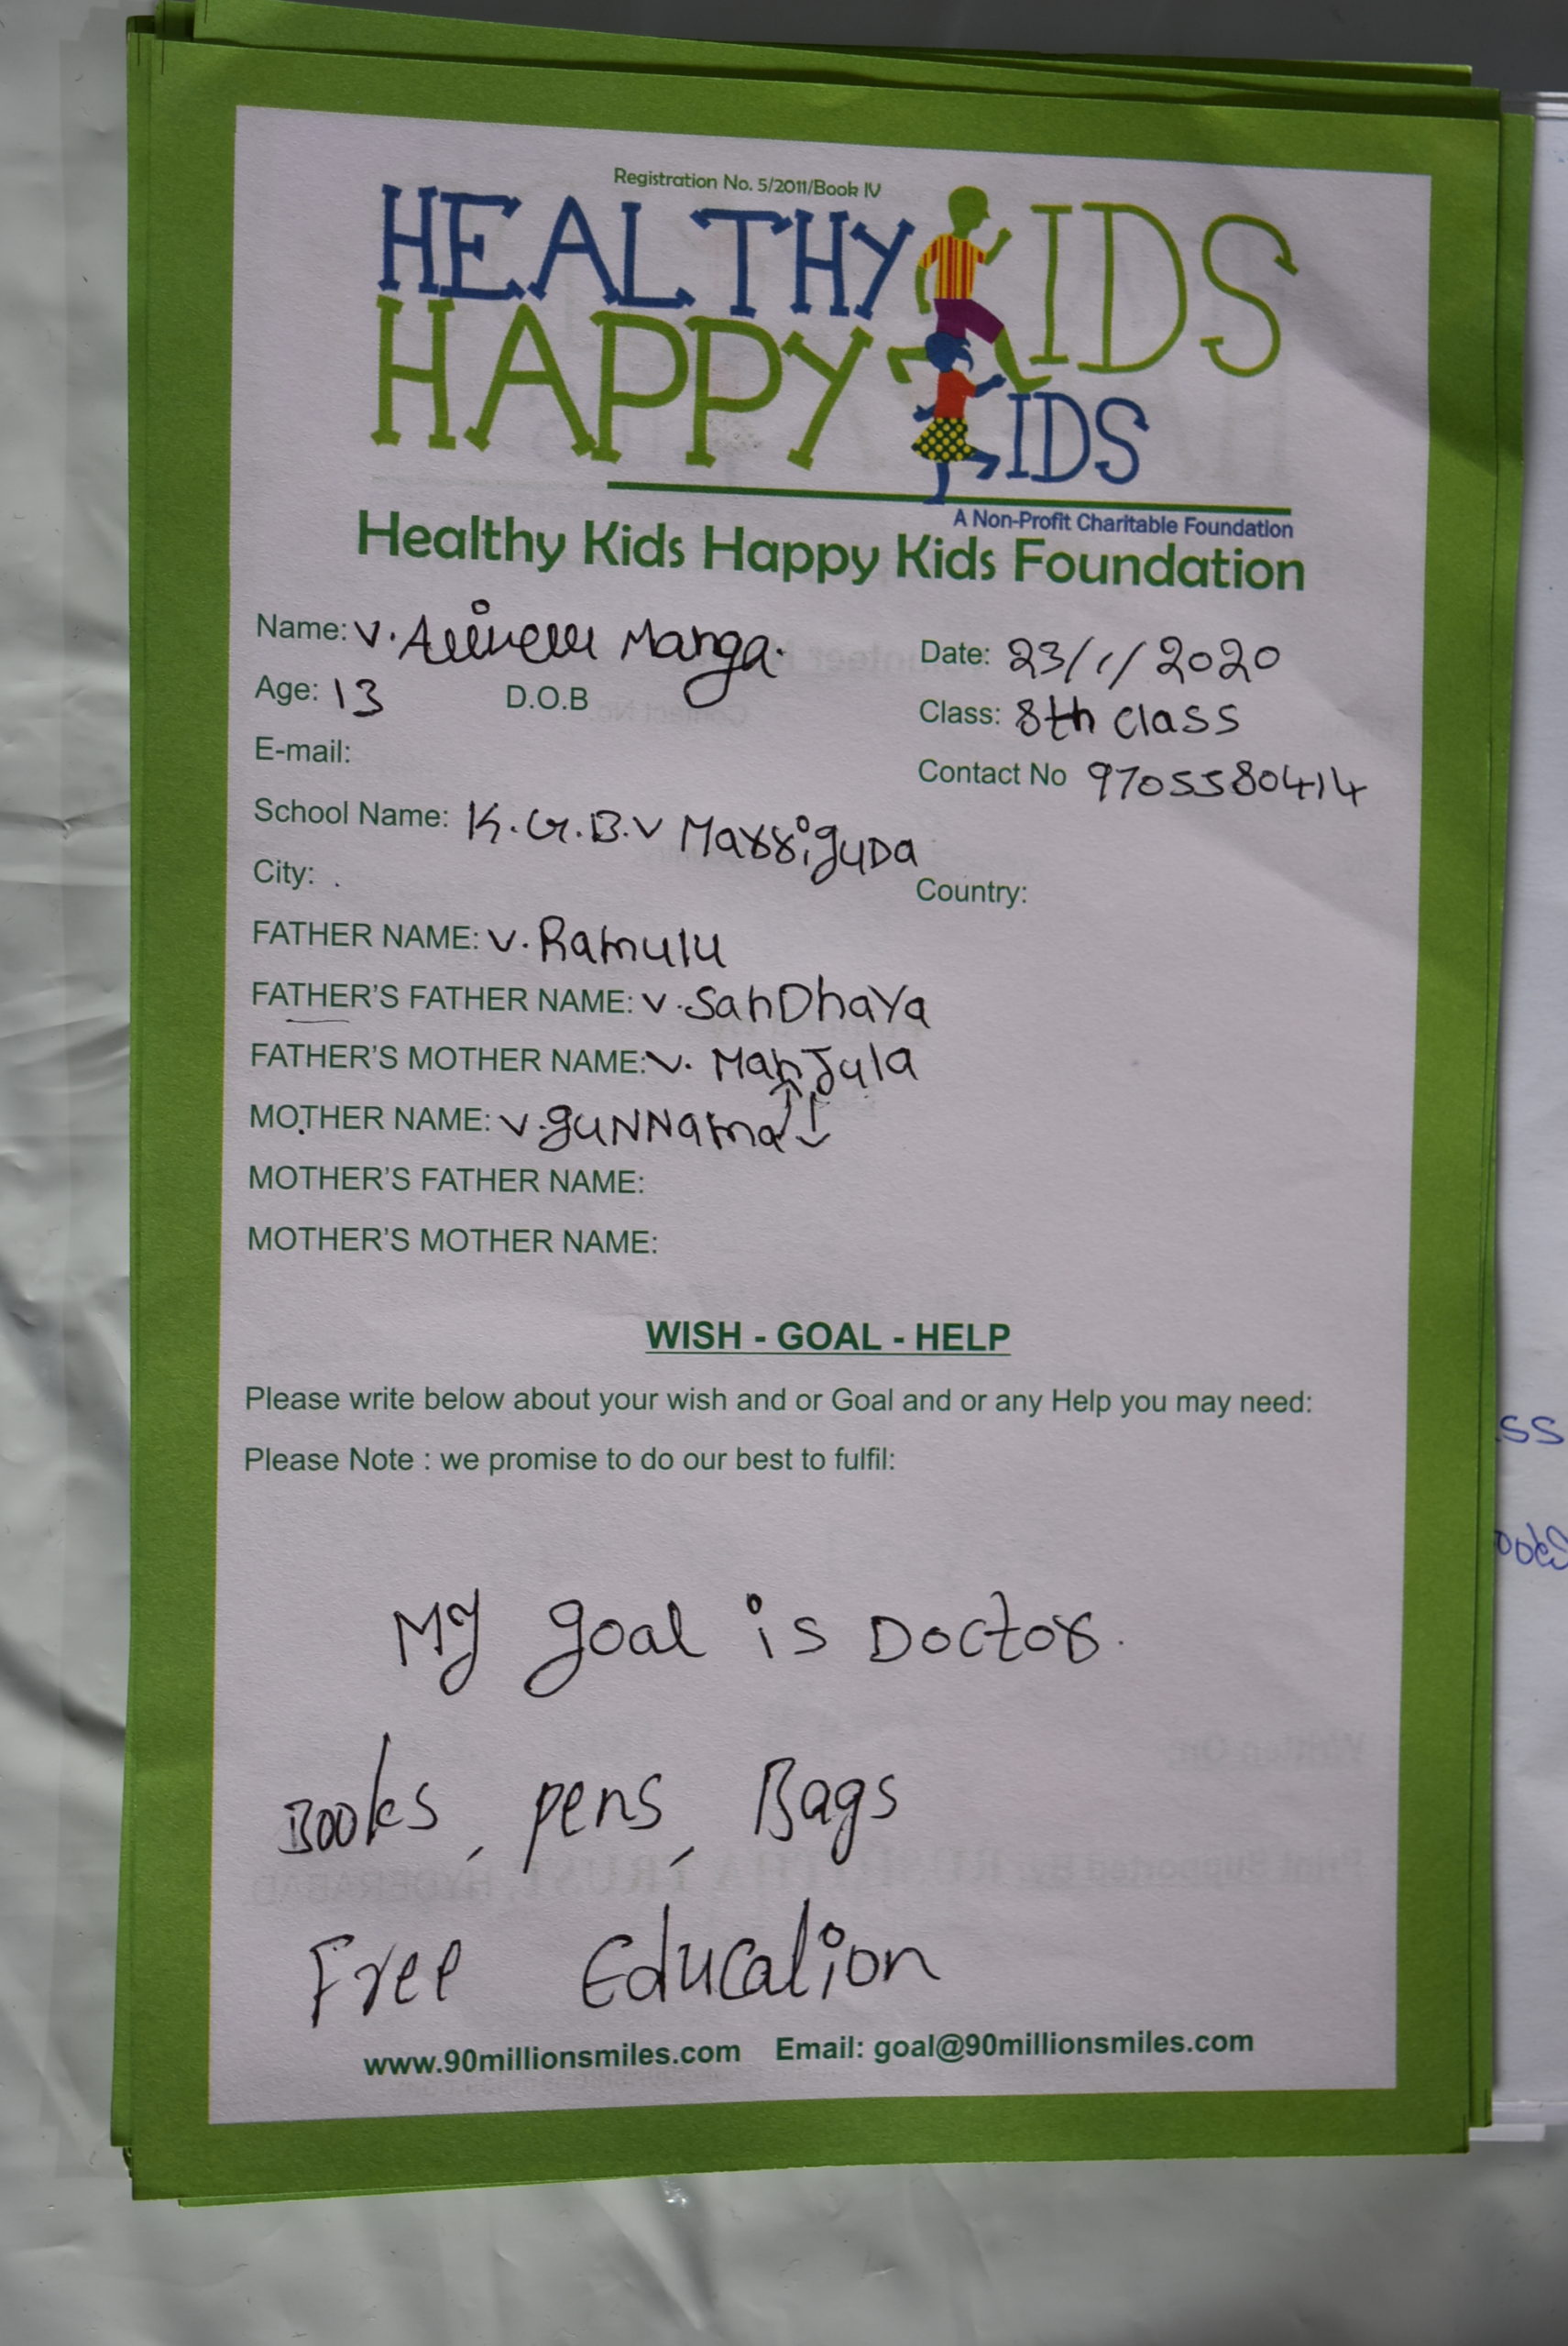 Registration No. 5/2011/Book IV
HEALTHY KIDS
HAPPY KIDS
A Non-Profit Charitable Foundation
Healthy Kids Happy Kids Foundation
Name: V. Manga.
Date: 23/1/2020
Age: 13 D.O.B
Class: 8th class
E-mail:
Contact No 9705580414
School Name: K.G.B.V Marriguda
City: .
Country:
FATHER NAME: V. Ramulu
FATHER'S FATHER NAME: V. SanDhaYa
FATHER'S MOTHER NAME: V. ManJula
MOTHER NAME: V. guNNama
MOTHER'S FATHER NAME:
MOTHER'S MOTHER NAME:
WISH - GOAL - HELP
Please write below about your wish and or Goal and or any Help you may need:
Please Note : we promise to do our best to fulfil:
My goal is Doctor.
Books, pens, Bags
Free Education
www.90millionsmiles.com Email: goal@90millionsmiles.com